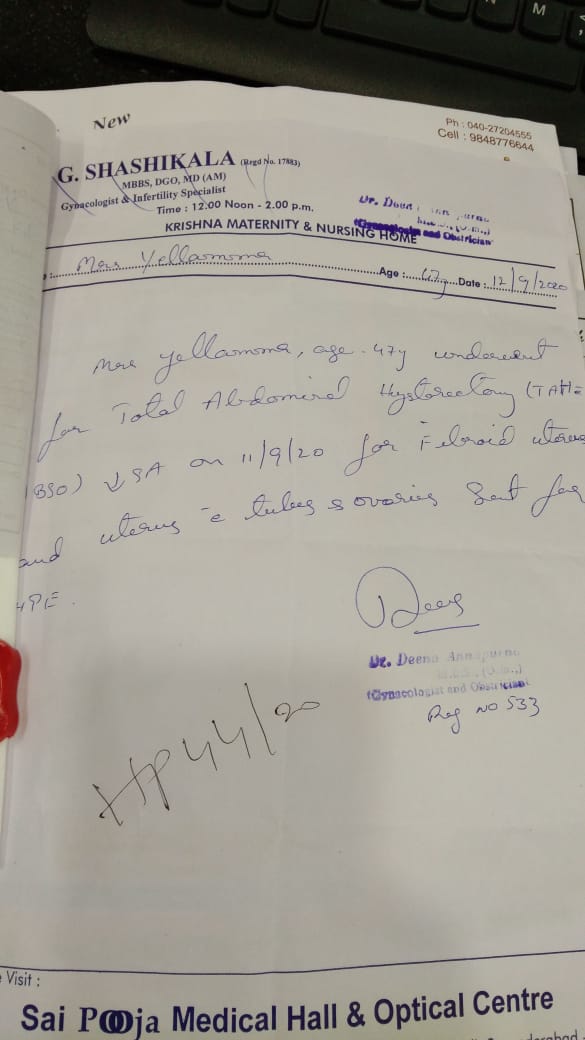 New
Ph : 040-27204555
Cell : 9848776644
G. SHASHIKALA (Regd No. 17883)
MBBS, DGO, MD (AM)
Gynacologist & Infertility Specialist
Time : 12.00 Noon - 2.00 p.m.
Dr. Deena
(Gynacologist and Obstrician
KRISHNA MATERNITY & NURSING HOME
: Mrs Yellamma Age : 47y Date : 12/9/2020
Mrs Yellamma, age. 47y underwent
for Total Abdominal Hysterectomy (TAH=
BSO) ↓ SA on 11/9/20 for Fibroid uterus
and uterus c̄ tubes & ovaries Sent for
HPE.
Dr. Deena Annapurna
(Gynacologist and Obstrician
Reg NO 533
HP44/20
Visit :
Sai Pooja Medical Hall & Optical Centre